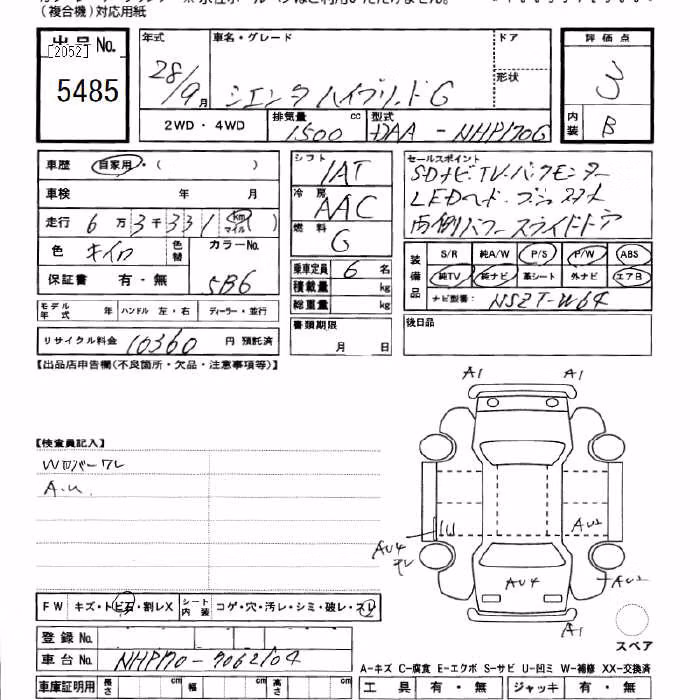 (複合機)対応用紙
出品No.
[2052]
5485
年式
28/9月
車名・グレード
シエンタ ハイブリッドG
ドア
形状
評価点
3
内装
B
2WD・4WD
排気量
1500 cc
型式
DAA-NHP170G
車歴
自家用・( )
車検 年 月
走行 6万3千331 (km マイル)
色 キイロ
色替
カラーNo.
5B6
保証書 有・無
シフト
IAT
冷房
AAC
燃料
G
乗車定員 6 名
積載量 kg
総重量 kg
書類期限
月 日
セールスポイント
SDナビ・TV・バックモニター
LEDヘッド・プッシュスタート
両側パワースライドドア
装備品
S/R 純A/W P/S P/W ABS
純TV 純ナビ 革シート 外ナビ エアB
ナビ型番: NSZT-W64
後日品
モデル年式 年
ハンドル 左・右
ディーラー・並行
リサイクル料金 10360 円 預託済
【出品店申告欄(不良箇所・欠品・注意事項等)】
【検査員記入】
A.u.
A1 A1
AU4
AU2
AU4
AU2
A1
スペア
FW キズ・トビ石・割レX
シート内装 コゲ・穴・汚レ・シミ・破レ・スレ
登録No.
車台No. NHP170-7062104
車庫証明用 長さ cm 幅 cm 高さ cm
A-キズ C-腐食 E-エクボ S-サビ U-凹ミ W-補修 XX-交換済
工具 有・無 ジャッキ 有・無